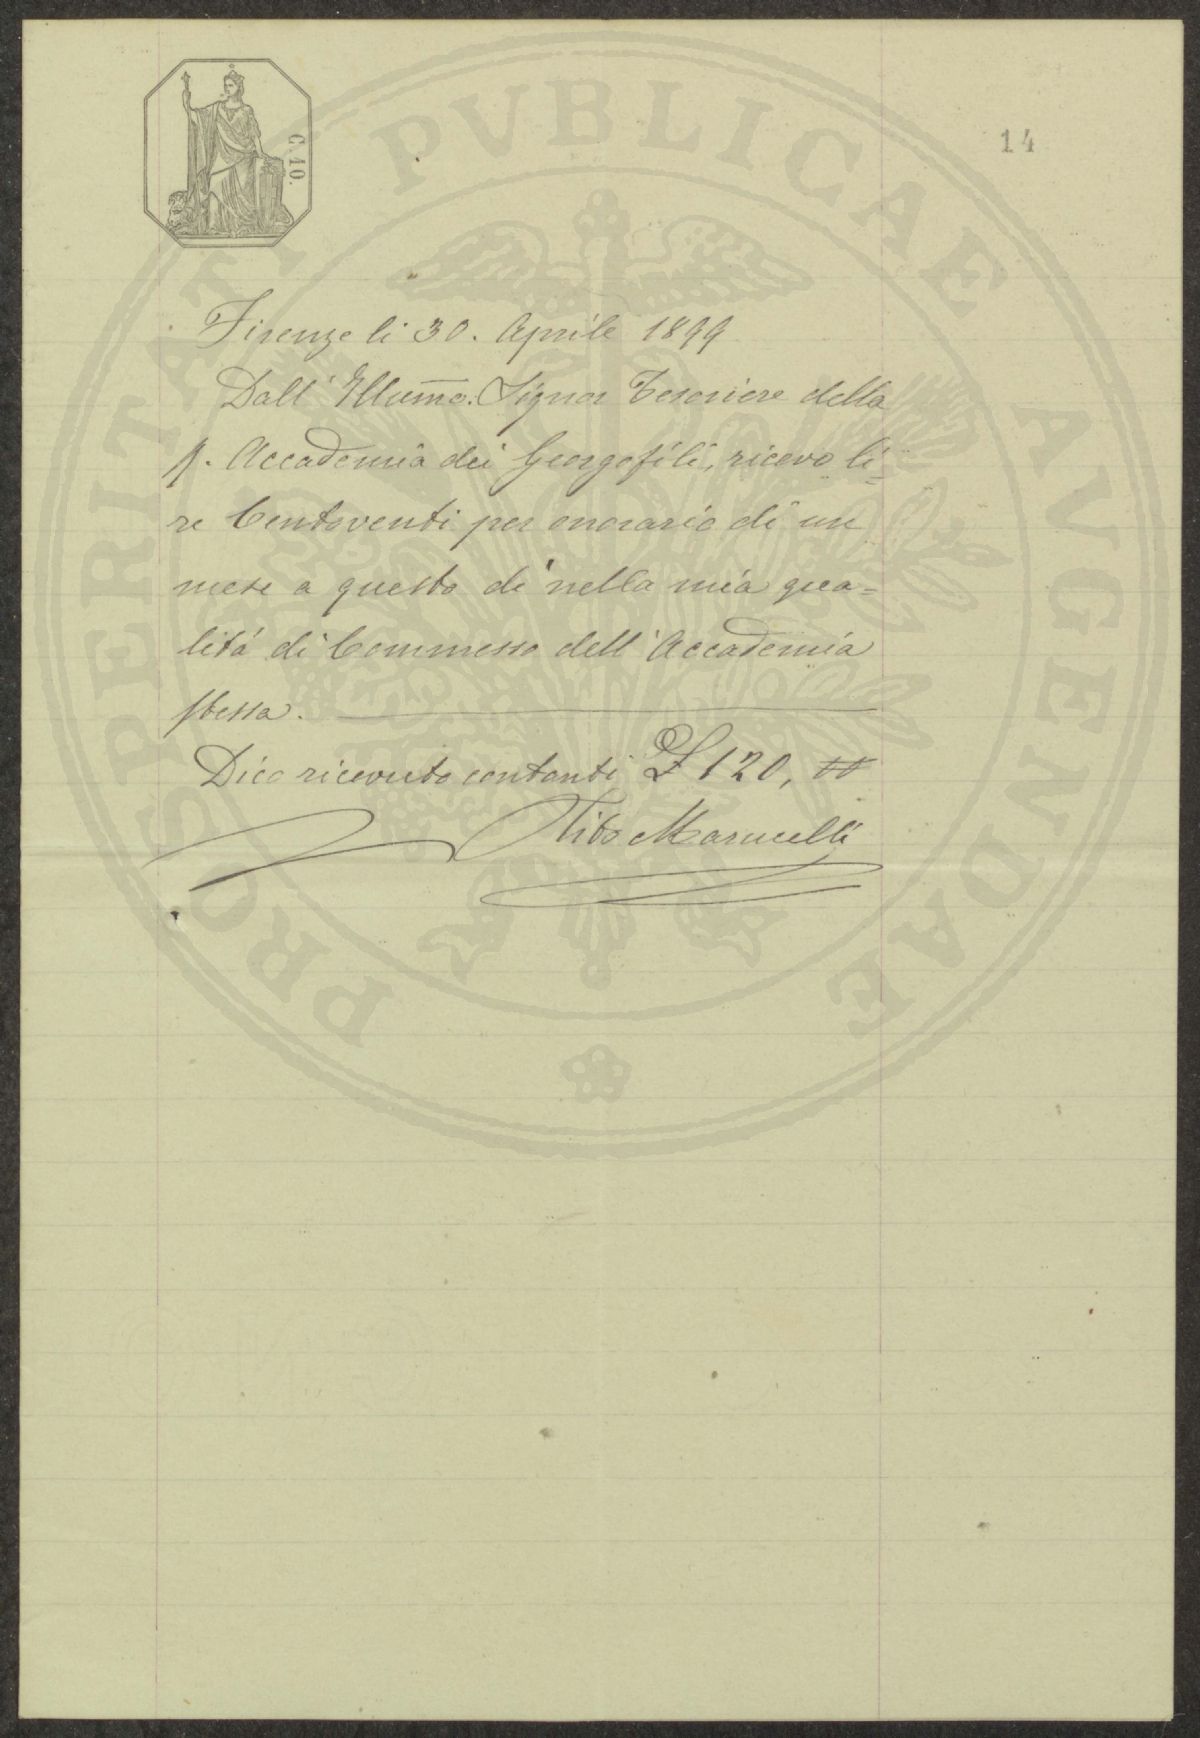 C. 10.
14
Firenze li 30. Aprile 1899
Dall' Illumo. Signor Tesoriere della
R. Accademia dei Georgofili, ricevo li=
re Centoventi per onorario di un
mese a questo dì nella mia qua=
lità di Commesso dell'Accademia
stessa.
Dico ricevuto contanti £ 120, "
Tito Marucelli
PROSPERITATI PVBLICAE AVGENDAE